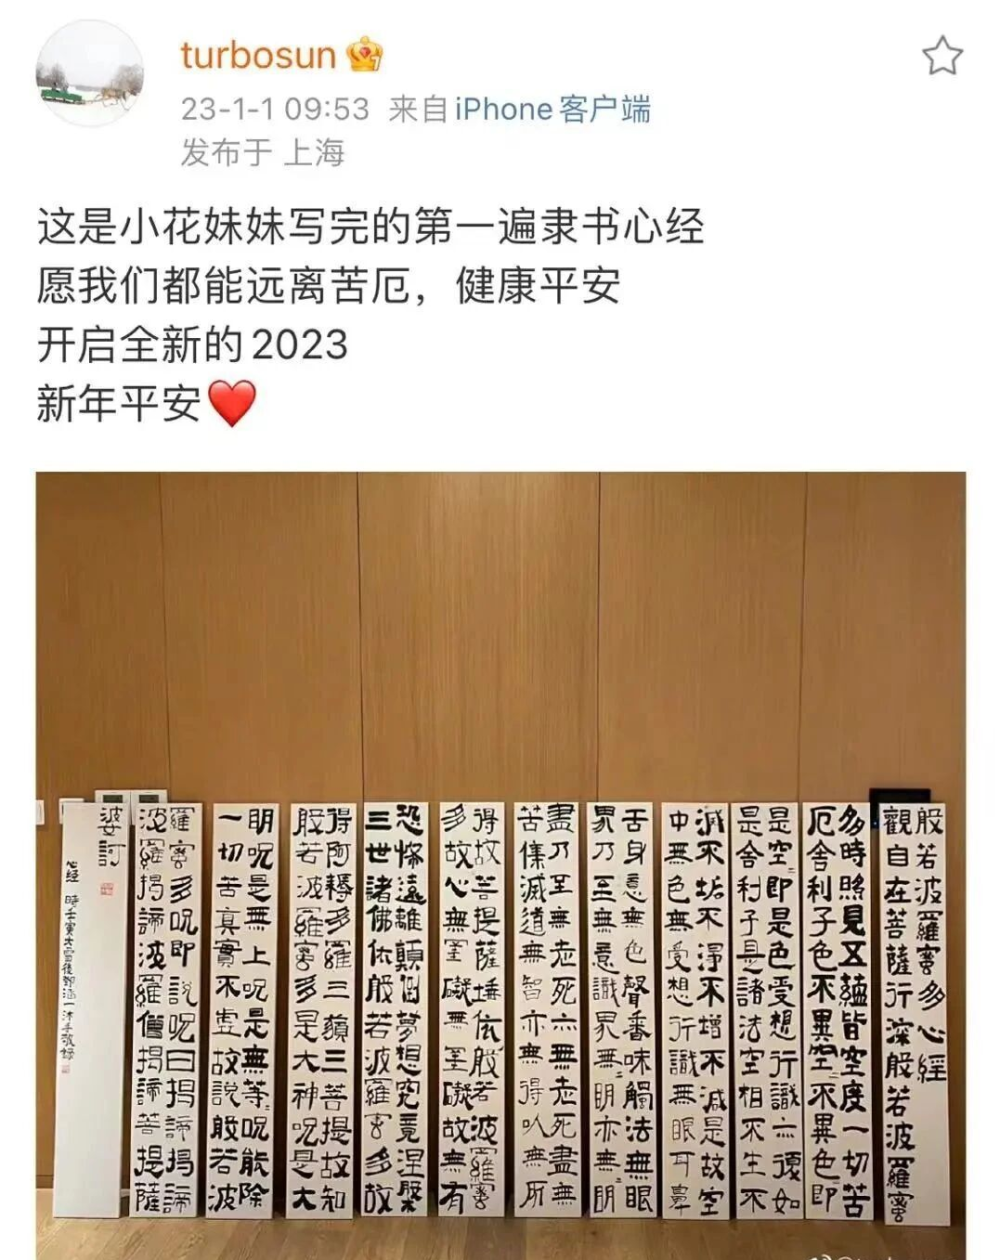 turbosun
23-1-1 09:53 来自 iPhone客户端
发布于 上海
这是小花妹妹写完的第一遍隶书心经
愿我们都能远离苦厄，健康平安
开启全新的2023
新年平安❤️
般若波羅蜜多心經
觀自在菩薩行深般若波羅蜜
多時照見五蘊皆空度一切苦
厄舍利子色不異空=不異色即
是空=即是色受想行識亦復如
是舍利子是諸法空相不生不
滅不垢不淨不增不減是故空
中無色無受想行識無眼耳鼻
舌身意無色聲香味觸法無眼
界乃至無意識界無=明亦無=明
盡乃至無老死亦無老死盡無
苦集滅道無智亦無得以無所
得故菩提薩埵依般若波羅蜜
多故心無罣礙無罣礙故無有
恐怖遠離顛倒夢想究竟涅槃
三世諸佛依般若波羅蜜多故
得阿耨多羅三藐三菩提故知
般若波羅蜜多是大神呪是大
明呪是無上呪是無等=呪能除
一切苦真實不虛故說般若波
羅蜜多呪即說呪曰揭諦揭諦
波羅揭諦波羅僧揭諦菩提薩
婆訶
心经 時壬寅大雪後